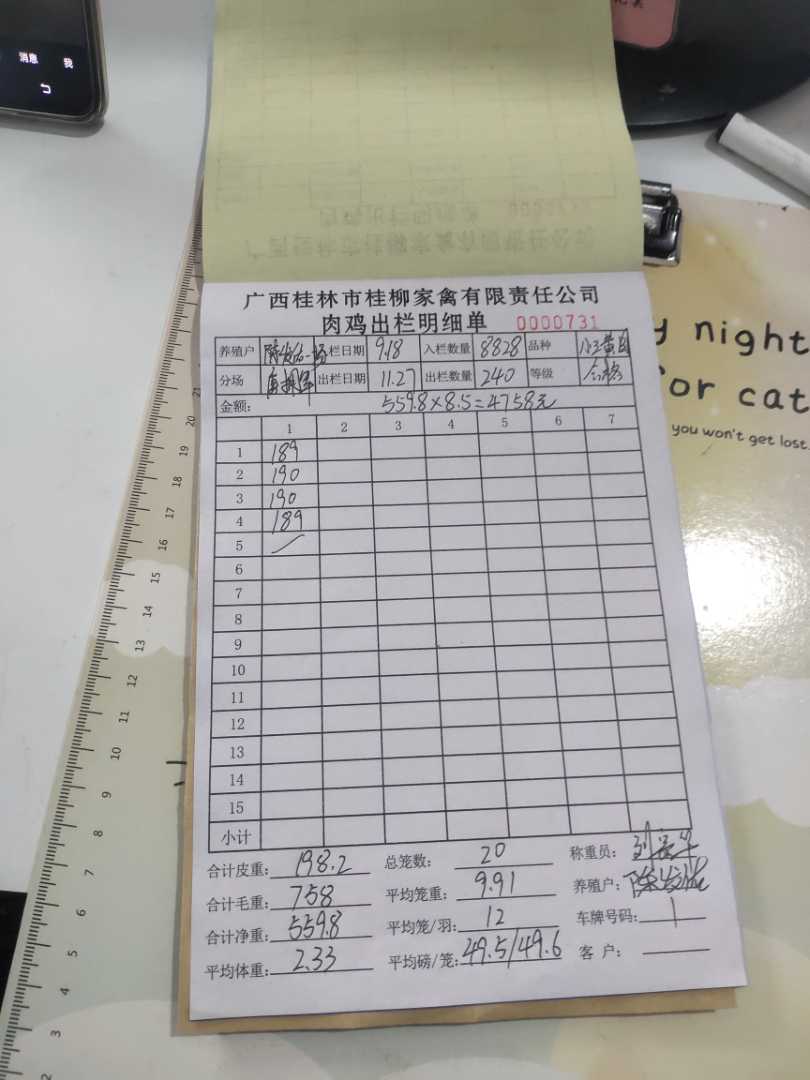 消息 我
y night
for cat
you won't get lost.
广西桂林市桂柳家禽有限责任公司
肉鸡出栏明细单 0000731
养殖户 栏日期 9.18 入栏数量 8828 品种
分场 出栏日期 11.27 出栏数量 240 等级 合格
金额: 559.8×8.5=4758元
1 2 3 4 5 6 7
1 189
2 190
3 190
4 189
5
6
7
8
9
10
11
12
13
14
15
小计
合计皮重: 198.2 总笼数: 20 称重员:
合计毛重: 758 平均笼重: 9.91 养殖户:
合计净重: 559.8 平均笼/羽: 12 车牌号码:
平均体重: 2.33 平均磅/笼: 49.5/49.6 客户:
21
20
19
18
17
16
15
14
13
12
11
10
9
8
7
6
5
4
3
2